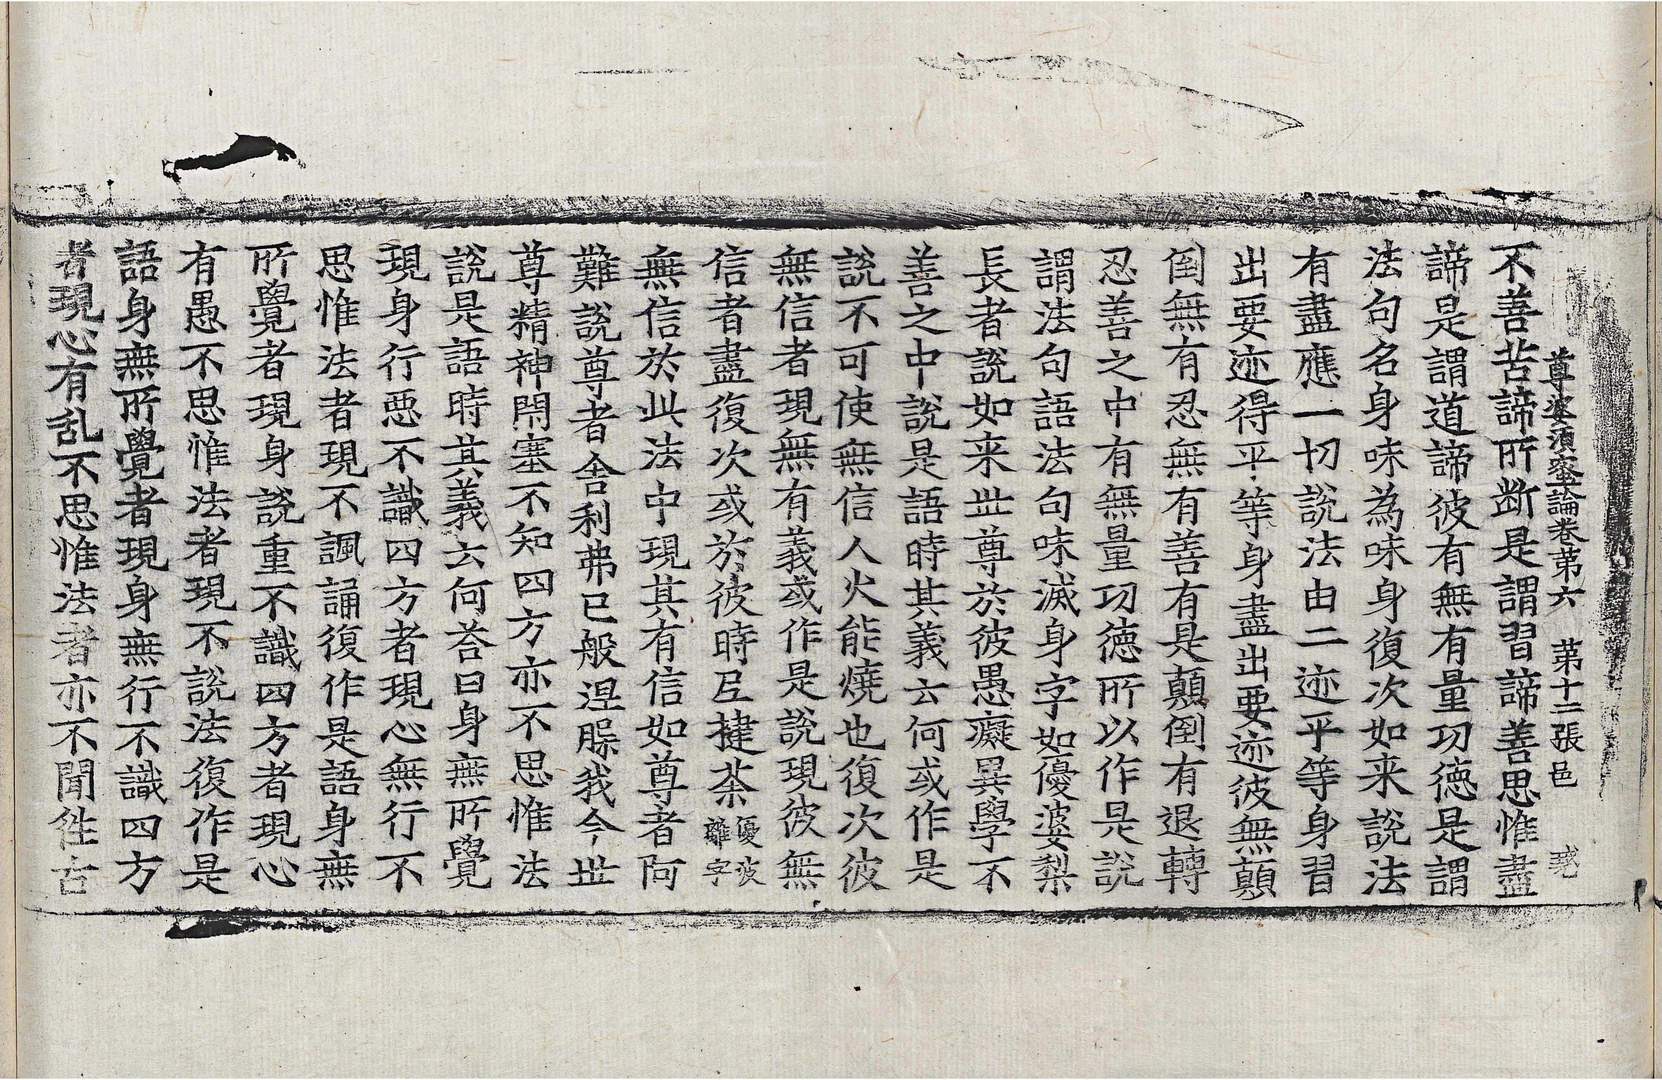 尊婆須蜜論卷第六　第十二張　邑
不善苦諦所斷是謂習諦善思惟盡
諦是謂道諦彼有無有量功德是謂
法句名身味為味身復次如来說法
有盡應一切說法由二迹乎等身習
出要迹得平等身盡出要迹彼無顛
倒無有忍無有善有是顛倒有退轉
忍善之中有無量功德所以作是說
謂法句語法句味滅身字如優婆梨
長者說如来世尊於彼愚癡異學不
善之中說是語時其義云何或作是
說不可使無信人火能燒也復次彼
無信者現無有義或作是說現彼無
信者盡復次或於彼時尼揵荼優波離字
無信於此法中現其有信如尊者阿
難說尊者舍利弗已般涅槃我今世
尊精神閇塞不知四方亦不思惟法
說是語時其義云何荅曰身無所覺
現身行悪不識四方者現心無行不
思惟法者現不諷誦復作是語身無
所覺者現身說重不識四方者現心
有愚不思惟法者現不說法復作是
語身無所覺者現身無行不識四方
者現心有乱不思惟法者亦不聞徃古